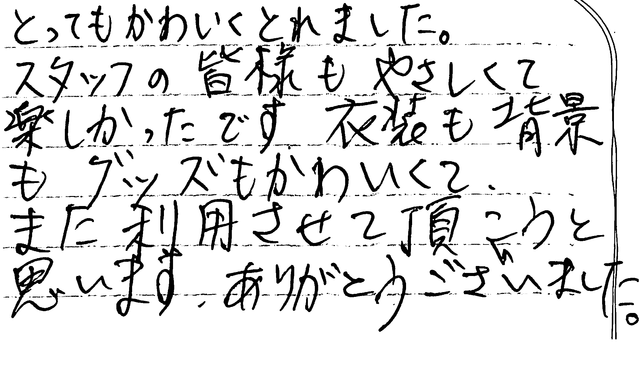 とってもかわいくとれました。
スタッフの皆様もやさしくて
楽しかったです 衣装も背景
もグッズもかわいくて、
また利用させて頂こうと
思います、ありがとうございました。